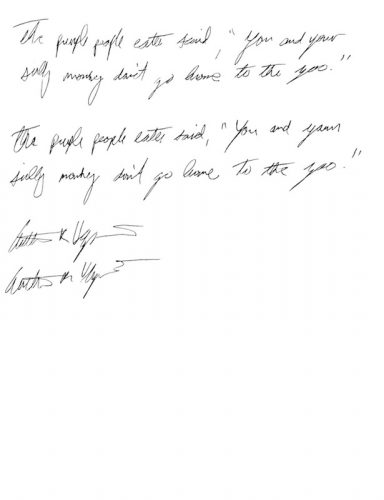 The purple people eater said, "You and your
silly monkey don't go home to the zoo."
The purple people eater said, "You and your
silly monkey don't go home to the zoo."